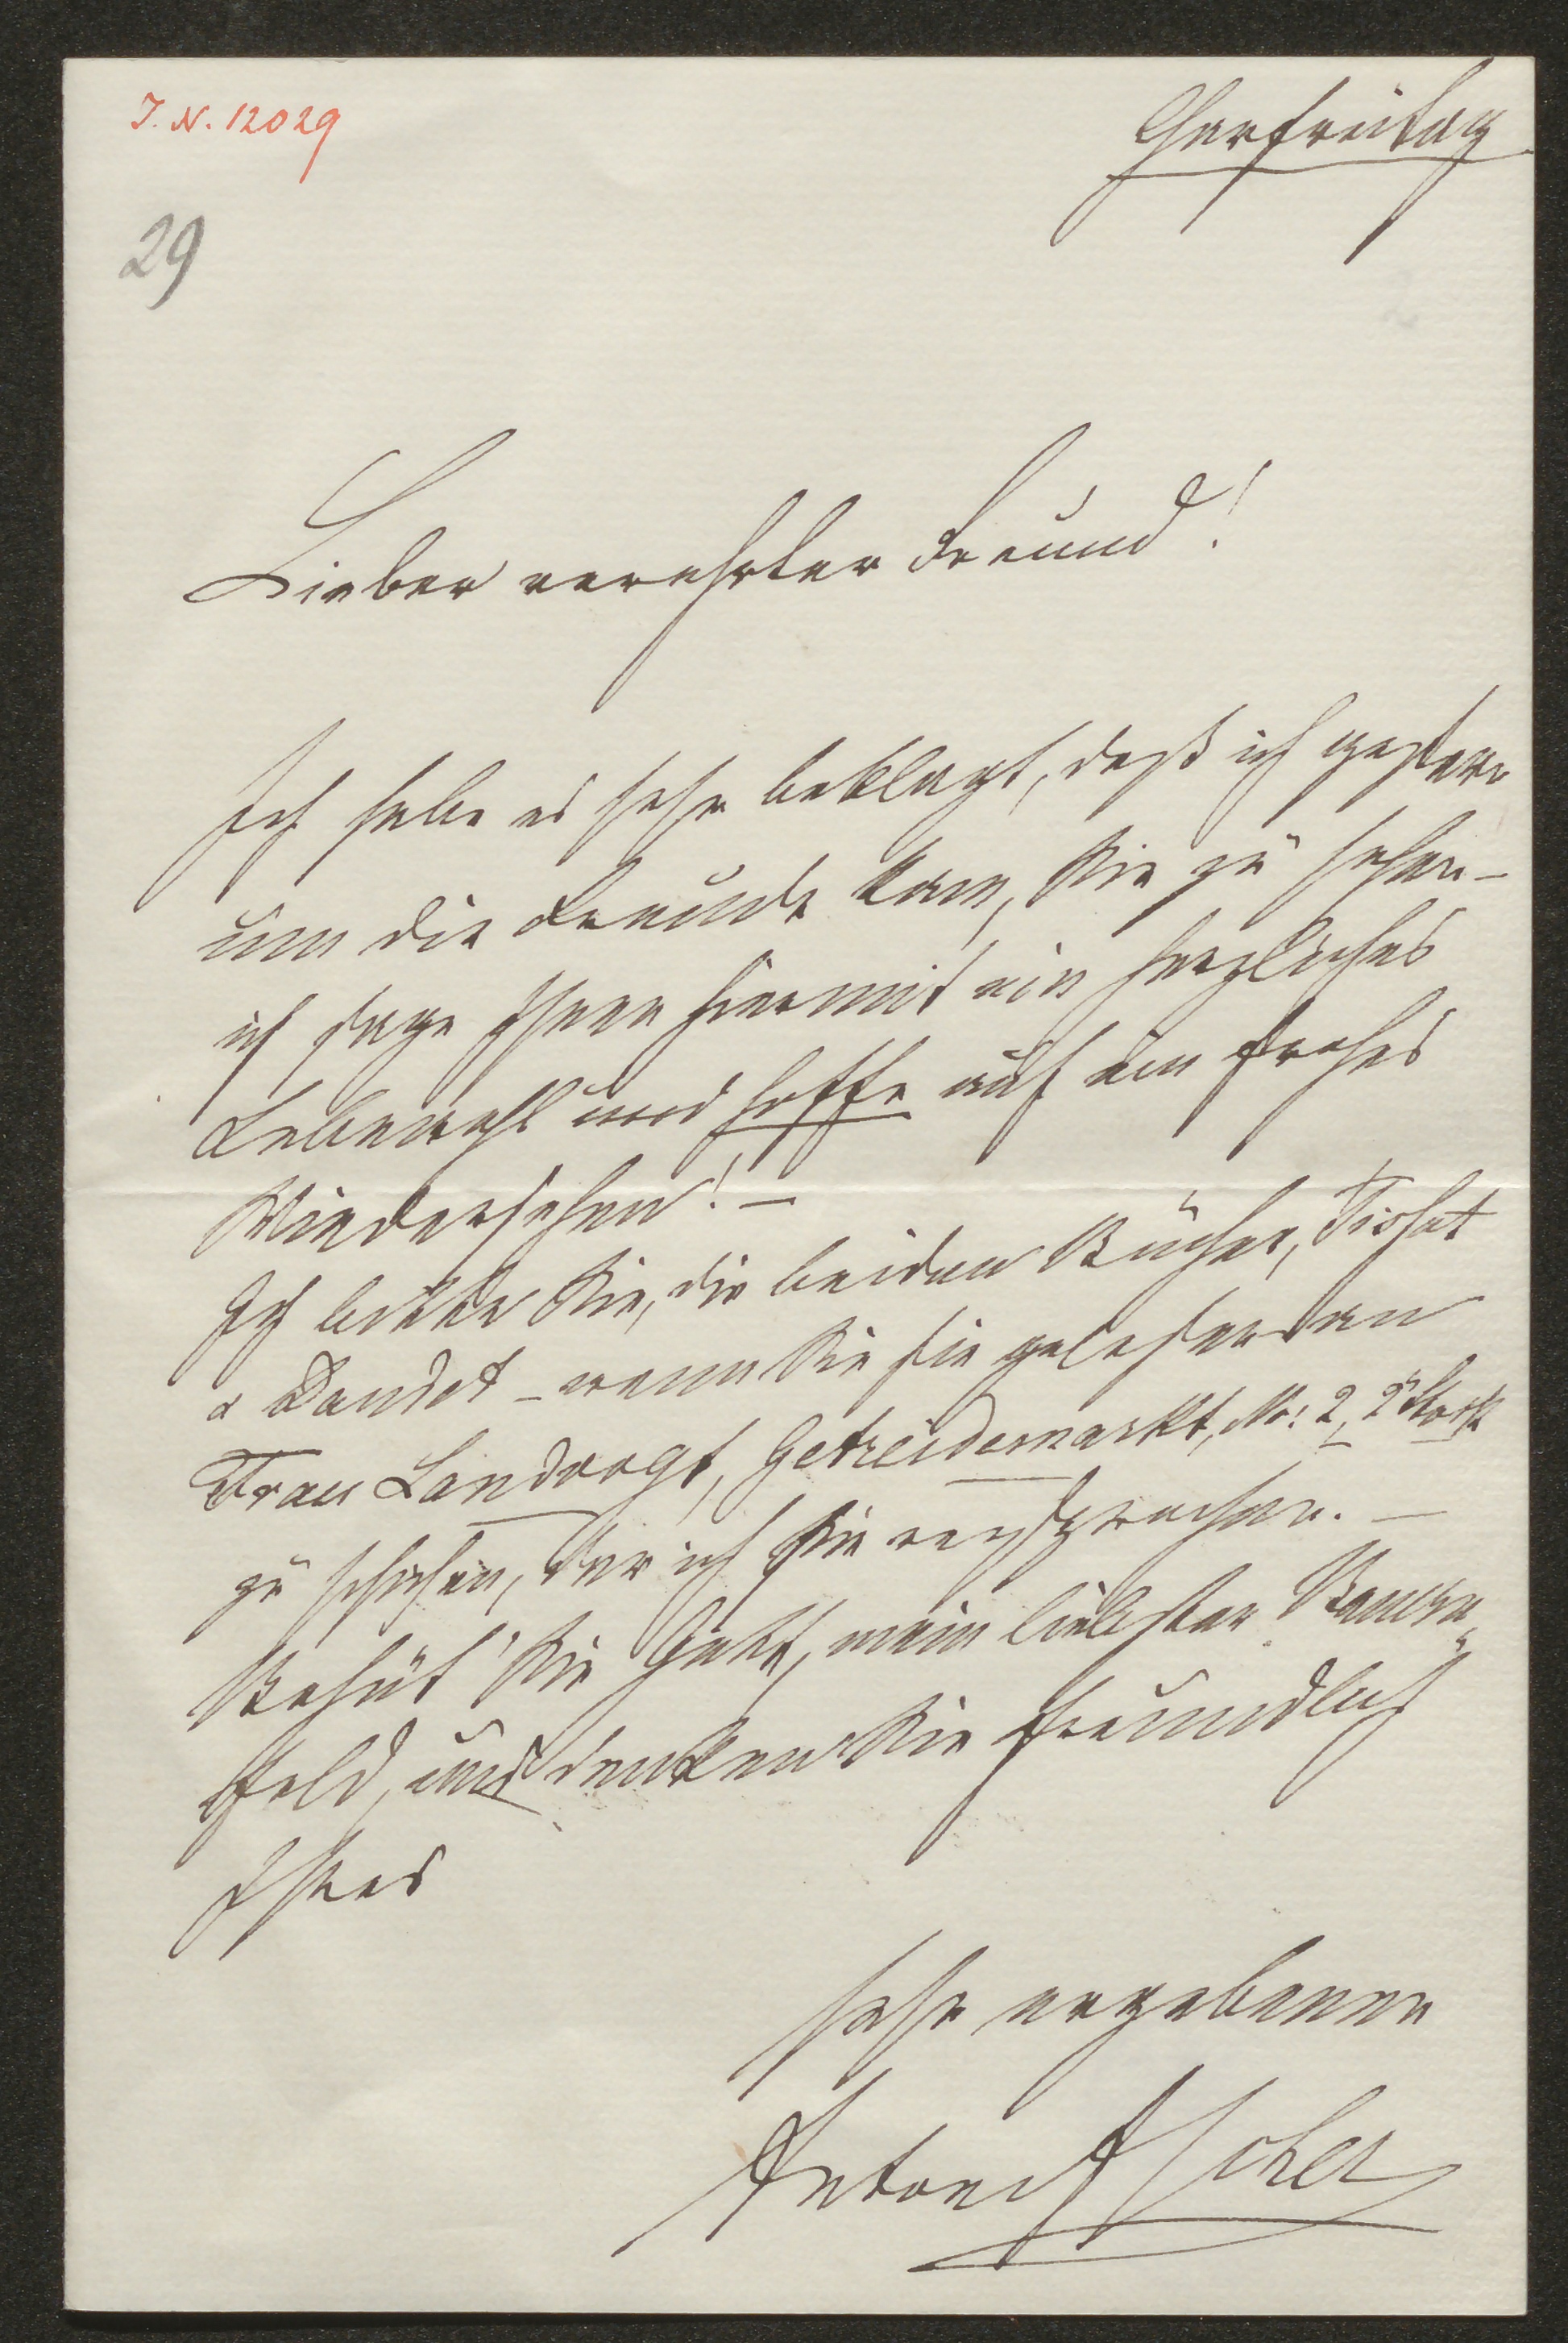 I. N. 12029
Charfreitag
29
Lieber verehrter Freund!
Ich habe es sehr beklagt, daß ich gestern
um die Freude kam, Sie zu sehen –
ich sage Ihnen hiermit ein herzliches
Lebewohl und hoffe auf ein frohes
Wiedersehen! –
Ich bitte Sie, die beiden Bücher, Tissot
& Daudet – wenn Sie sie gelesen an
Frau Landvogt, Getreidemarkt, No: 2, 2r Stock
zu schicken, der ich sie versprochen. –
Behüt' Sie Gott, mein liebster Bauern-
feld, und denken Sie freundlich
Ihres
sehr ergebenen
Anton Ascher